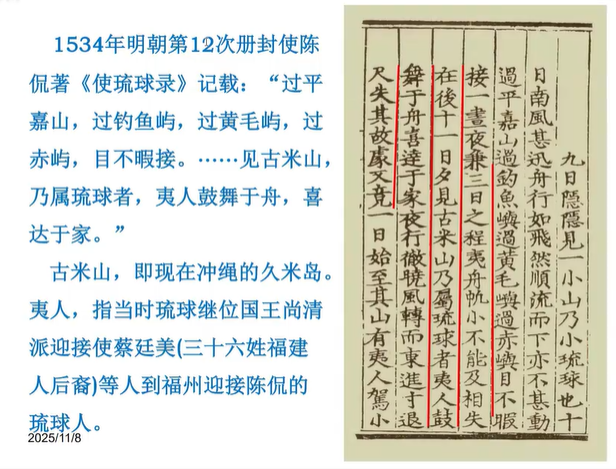 1534年明朝第12次册封使陈
侃著《使琉球录》记载：“过平
嘉山，过钓鱼屿，过黄毛屿，过
赤屿，目不暇接。……见古米山，
乃属琉球者，夷人鼓舞于舟，喜
达于家。”
古米山，即现在冲绳的久米岛。
夷人，指当时琉球继位国王尚清
派迎接使蔡廷美(三十六姓福建
人后裔)等人到福州迎接陈侃的
琉球人。
2025/11/8
九日隱隱見一小山乃小琉球也十
日南風甚迅舟行如飛然順流而下亦不甚動
過平嘉山過釣魚嶼過黃毛嶼過赤嶼目不暇
接一晝夜兼三日之程夷舟帆小不能及相失
在後十一日夕見古米山乃屬琉球者夷人鼓
舞于舟喜達于家夜行徹曉風轉而東進寸退
尺失其故處又竟一日始至其山有夷人駕小